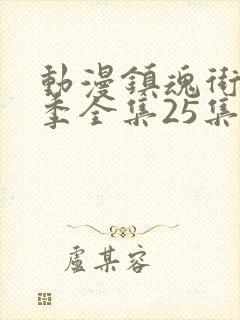 動漫鎮魂街
季全集25集
盧某容